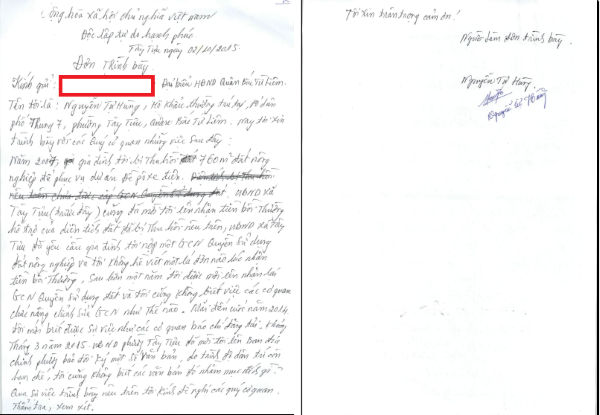 Cộng hòa xã hội chủ nghĩa việt nam
Độc lập tự do hạnh phúc
Tây Tựu ngày 02/10/2015
Đơn Trình bày
Kính gửi: Đại biểu HĐND Quận Bắc Từ Liêm.
Tên tôi là: Nguyễn Tự Hùng, Hộ khẩu thường trú tại, tổ dân
phố Thượng 7, phường Tây Tựu, Quận Bắc Từ Liêm. Nay tôi xin
trình bày với các Quý cơ quan những việc Sau đây:
Năm 2007, gia đình tôi bị thu hồi 760m² đất nông
nghiệp để phục vụ dự án Đề pô xe điện.
UBND xã
Tây Tựu (trước đây) cũng đã mời tôi lên nhận tiền bồi thường
hỗ trợ của diện tích đất đã bị thu hồi nêu trên, UBND xã Tây
Tựu đã yêu cầu gia đình tôi nộp một GCN Quyền sử dụng
đất nông nghiệp và tôi không hề viết một lá đơn nào lúc nhận
tiền bồi thường, Sau hơn một năm tôi được mời lên nhận lại
GCN Quyền sử dụng đất và tôi cũng không biết việc các cơ quan
chức năng chỉnh sửa GCN như thế nào. Mãi đến cuối năm 2014
tôi mới biết được sự việc như các cơ quan báo chí đăng tải. Khoảng
Tháng 3 năm 2015 UBND phường Tây Tựu đã mời tôi lên Ban địa
chính phường bảo tôi ký một số văn bản, do trình độ dân trí còn
hạn chế, tôi cũng không biết các văn bản đó nhằm mục đích gì.
Qua sự việc trình bày nêu trên tôi kính đề nghị các quý cơ quan
Thẩm tra, xem xét.
Tôi xin trân trọng cảm ơn!
Người làm đơn trình bày.
Nguyễn Tự Hùng
Nguyễn Tự Hùng